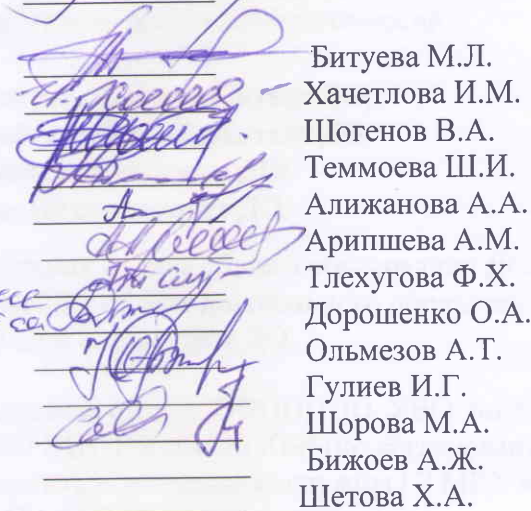 Битуева М.Л.
Хачетлова И.М.
Шогенов В.А.
Теммоева Ш.И.
Алижанова А.А.
Арипшева А.М.
Тлехугова Ф.Х.
Дорошенко О.А.
Ольмезов А.Т.
Гулиев И.Г.
Шорова М.А.
Бижоев А.Ж.
Шетова Х.А.